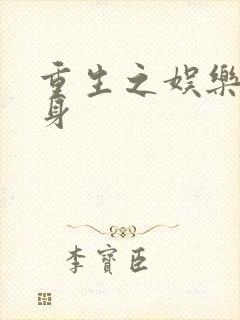 重生之娱樂
身
李寶臣